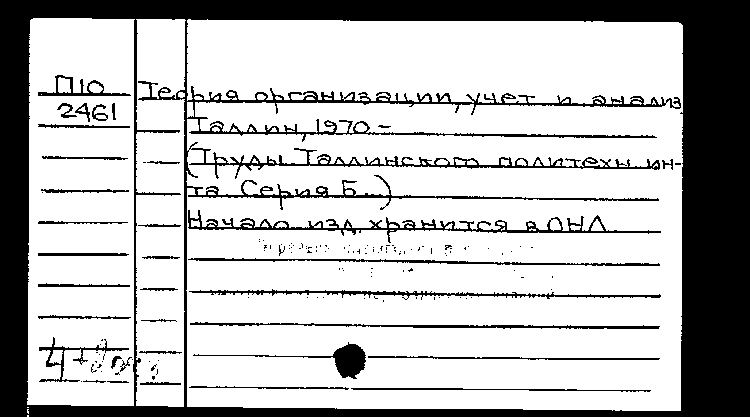 П10
2461
Теория организации, учет и анализ
Таллин, 1970.-
(Труды Таллинского политехн. ин-
та Серия Б..)
Начало изд. хранится в ОНЛ.